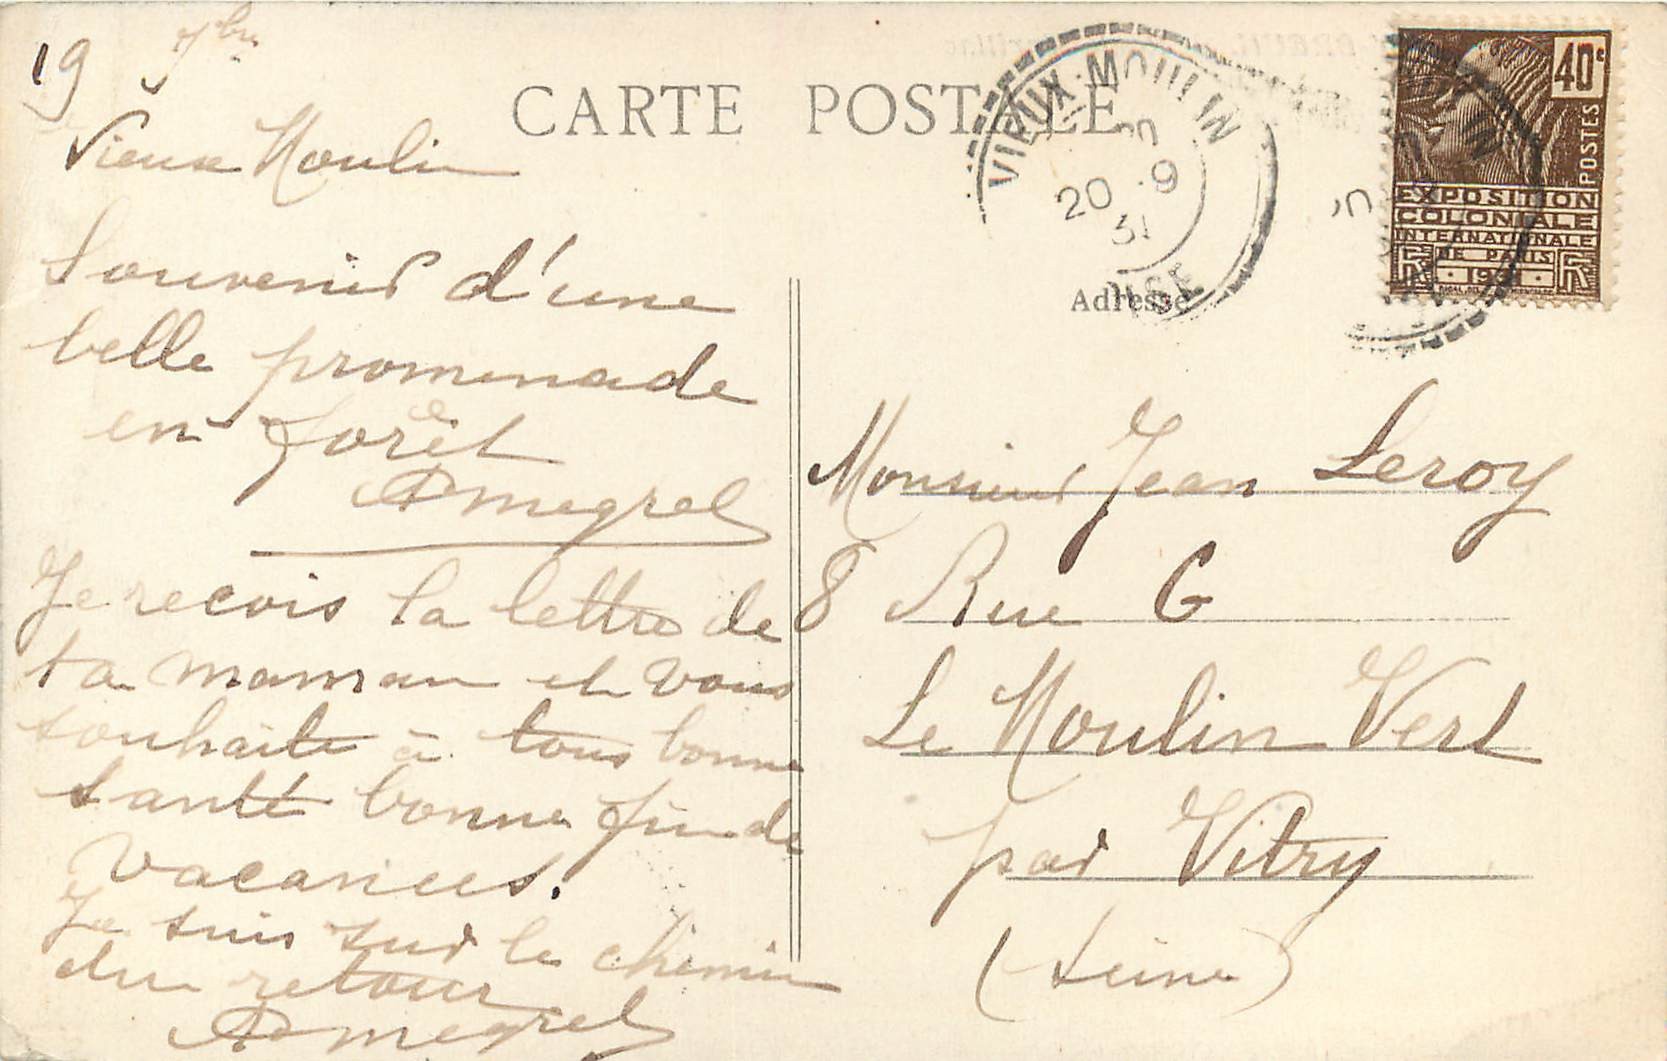 19 7bre
Vieux Moulin
Souvenir d'une
belle promenade
en forêt
Je recois la lettre de
ta maman et vous
souhaite à tous bonne
santé bonne fin de
vacances.
Je suis sur le chemin
du retour
CARTE POSTALE
VIEUX-MOULIN
20 - 9
31
OISE
40c
POSTES
EXPOSITION
COLONIALE
INTERNATIONALE
DE PARIS
1931
RF RF
Adresse
Monsieur Jean Leroy
8 Rue G
Le Moulin Vert
par Vitry
(Seine)